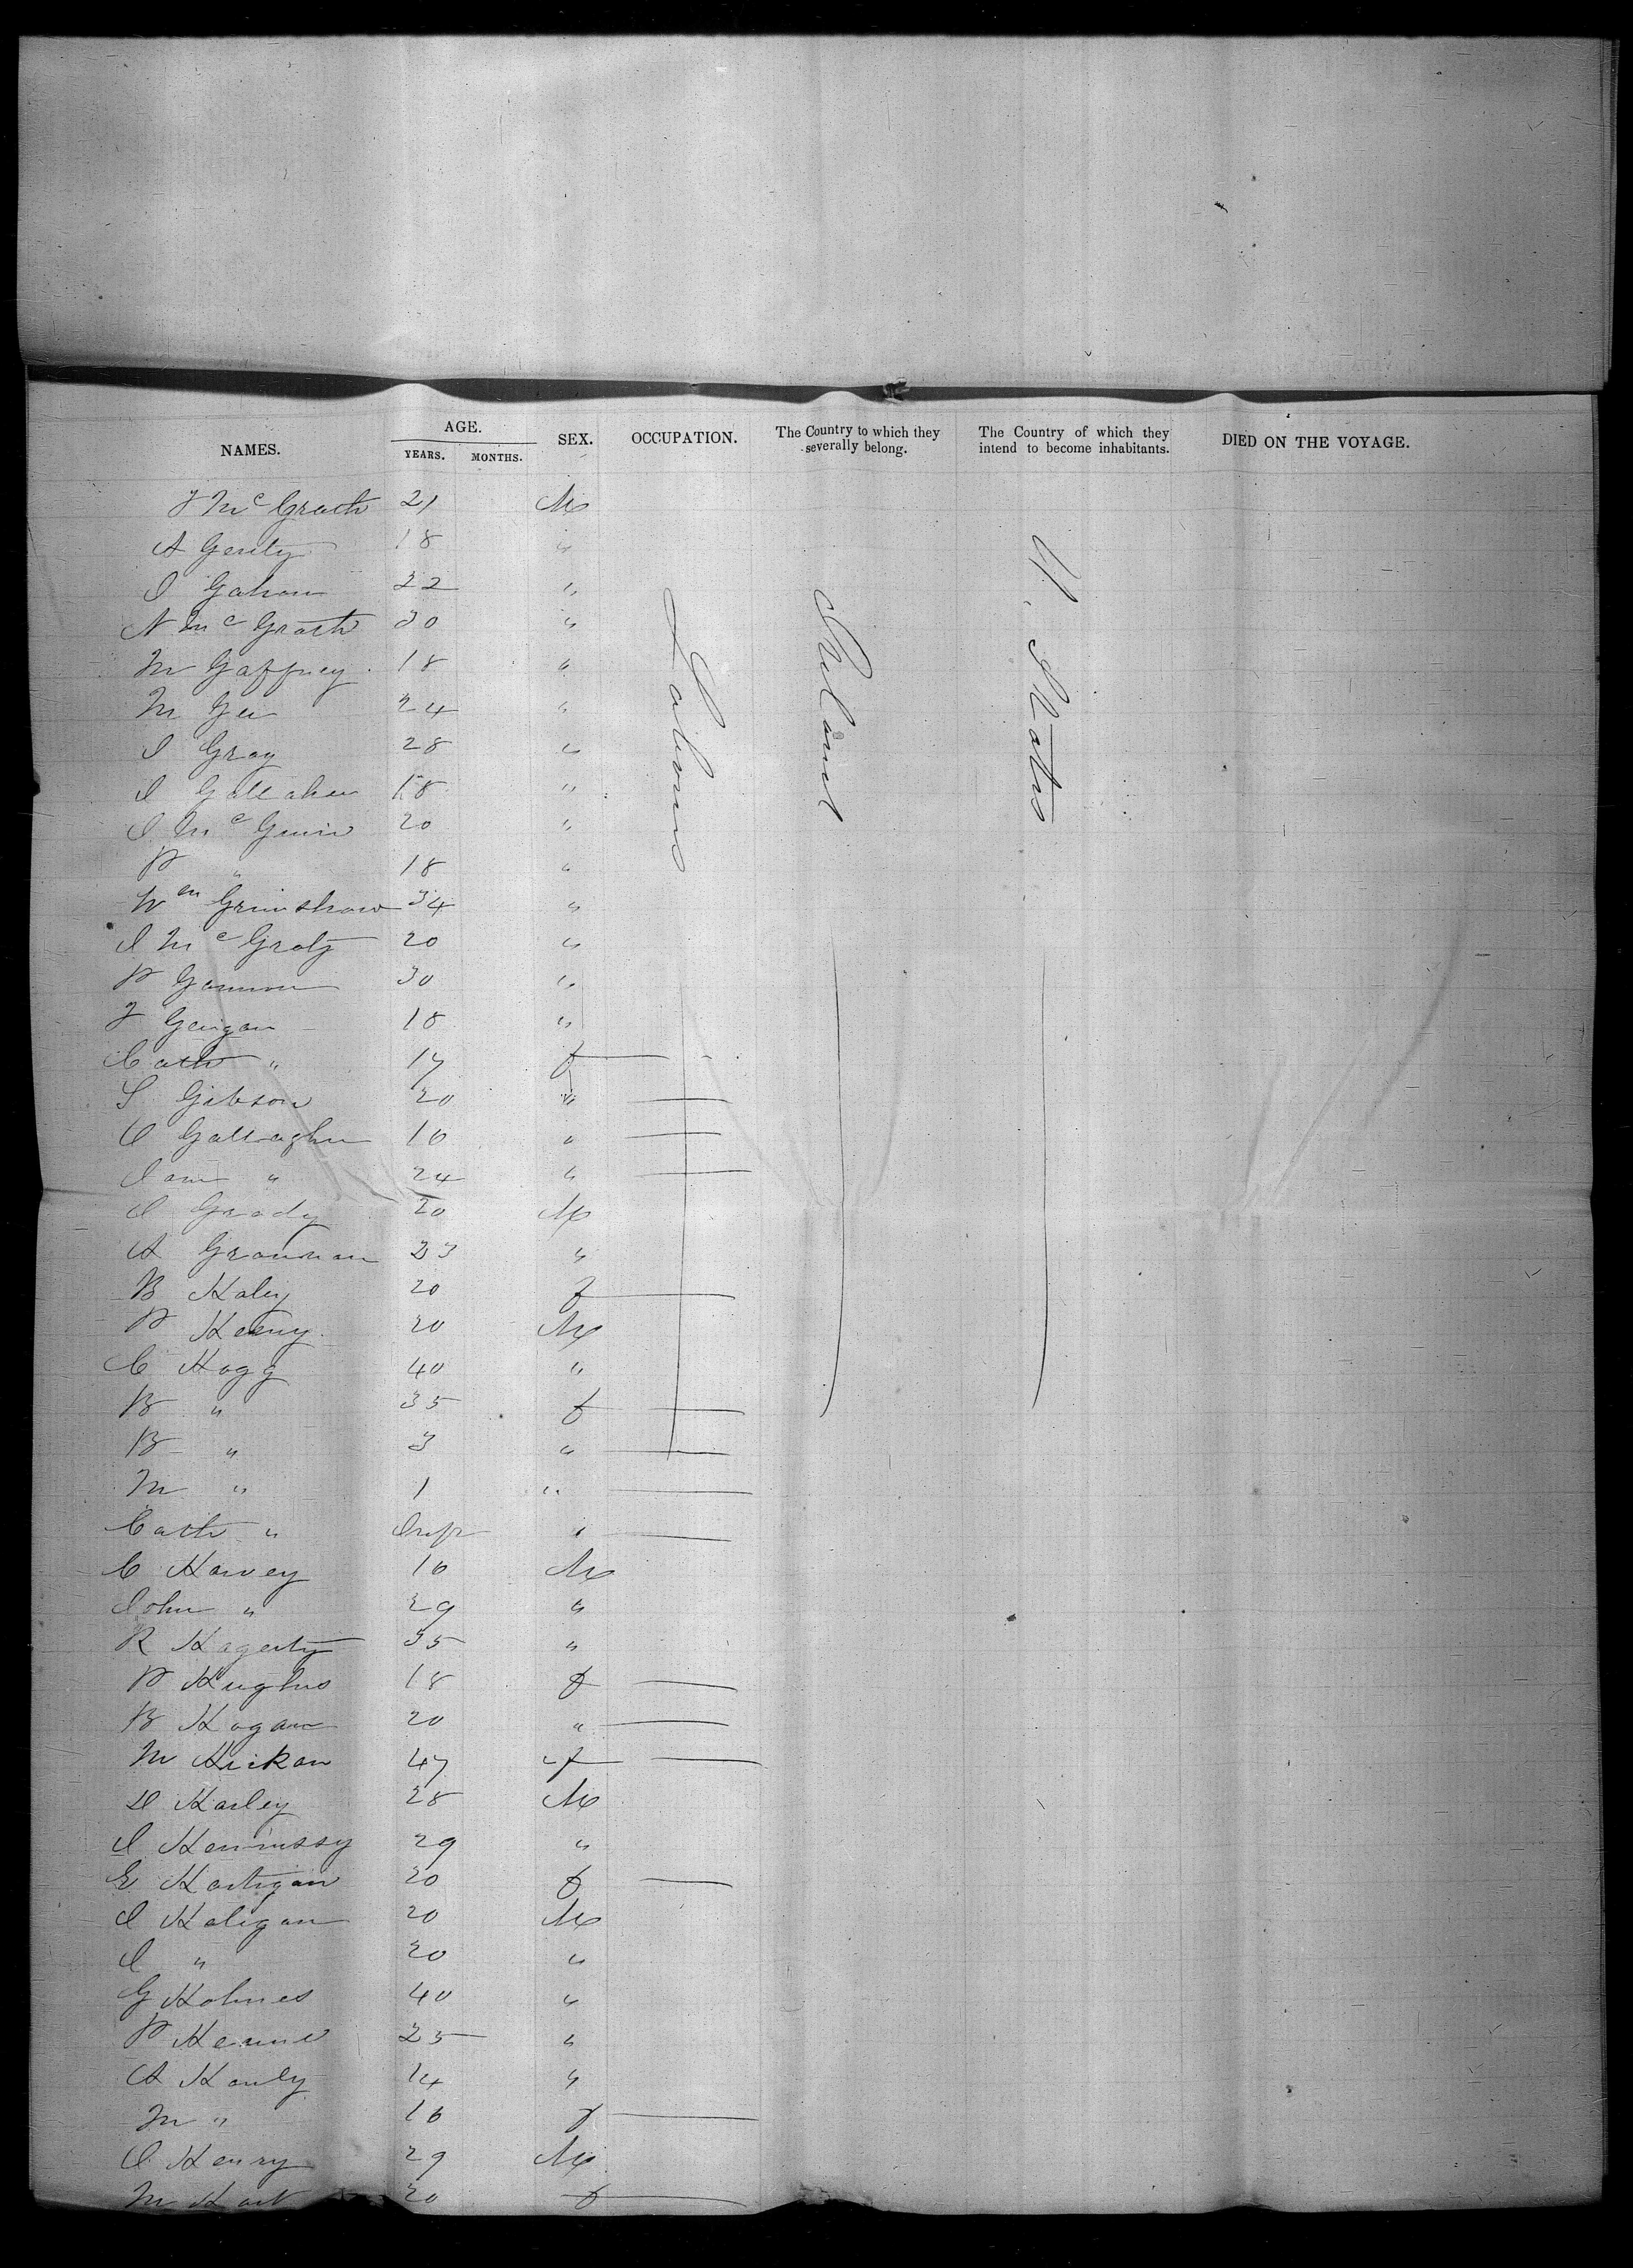 NAMES. AGE. YEARS. MONTHS. SEX. OCCUPATION. The Country to which they severally belong. The Country of which they intend to become inhabitants. DIED ON THE VOYAGE.
J McGrath 21 M
A Gerity 18 "
J Gahan 22 "
N McGrath 30 "
M Gaffney 18 "
M Gee 24 "
J Gray 28 "
J Gallaher 18 "
J McGuire 20 "
P " 18 "
Wm Grimshaw 34 "
J McGraty 20 "
P Gannon 30 "
J Geigan 18 "
Cath " 17 f
S Gibson 20 "
C Gallagher 16 "
Jane " 24 "
J Grady 20 M
A Grannan 23 "
B Haley 20 f
P Heeny 20 M
C Hogg 40 "
B " 35 f
B " 3 "
M " 1 "
Cath " Inft "
C Harvey 16 M
John " 29 "
R Hagerty 35 "
P Hughes 18 f
B Hogan 20 "
M Hickan 47 " f
D Harley 28 M
J Hennessy 29 "
E Hartigan 20 f
J Haligan 20 M
J " 20 "
G Holmes 40 "
P 25 "
A Hanly 14 "
M " 16 f
J Henry 29 M
M Hart 20 f
Labourers
Ireland
U. States